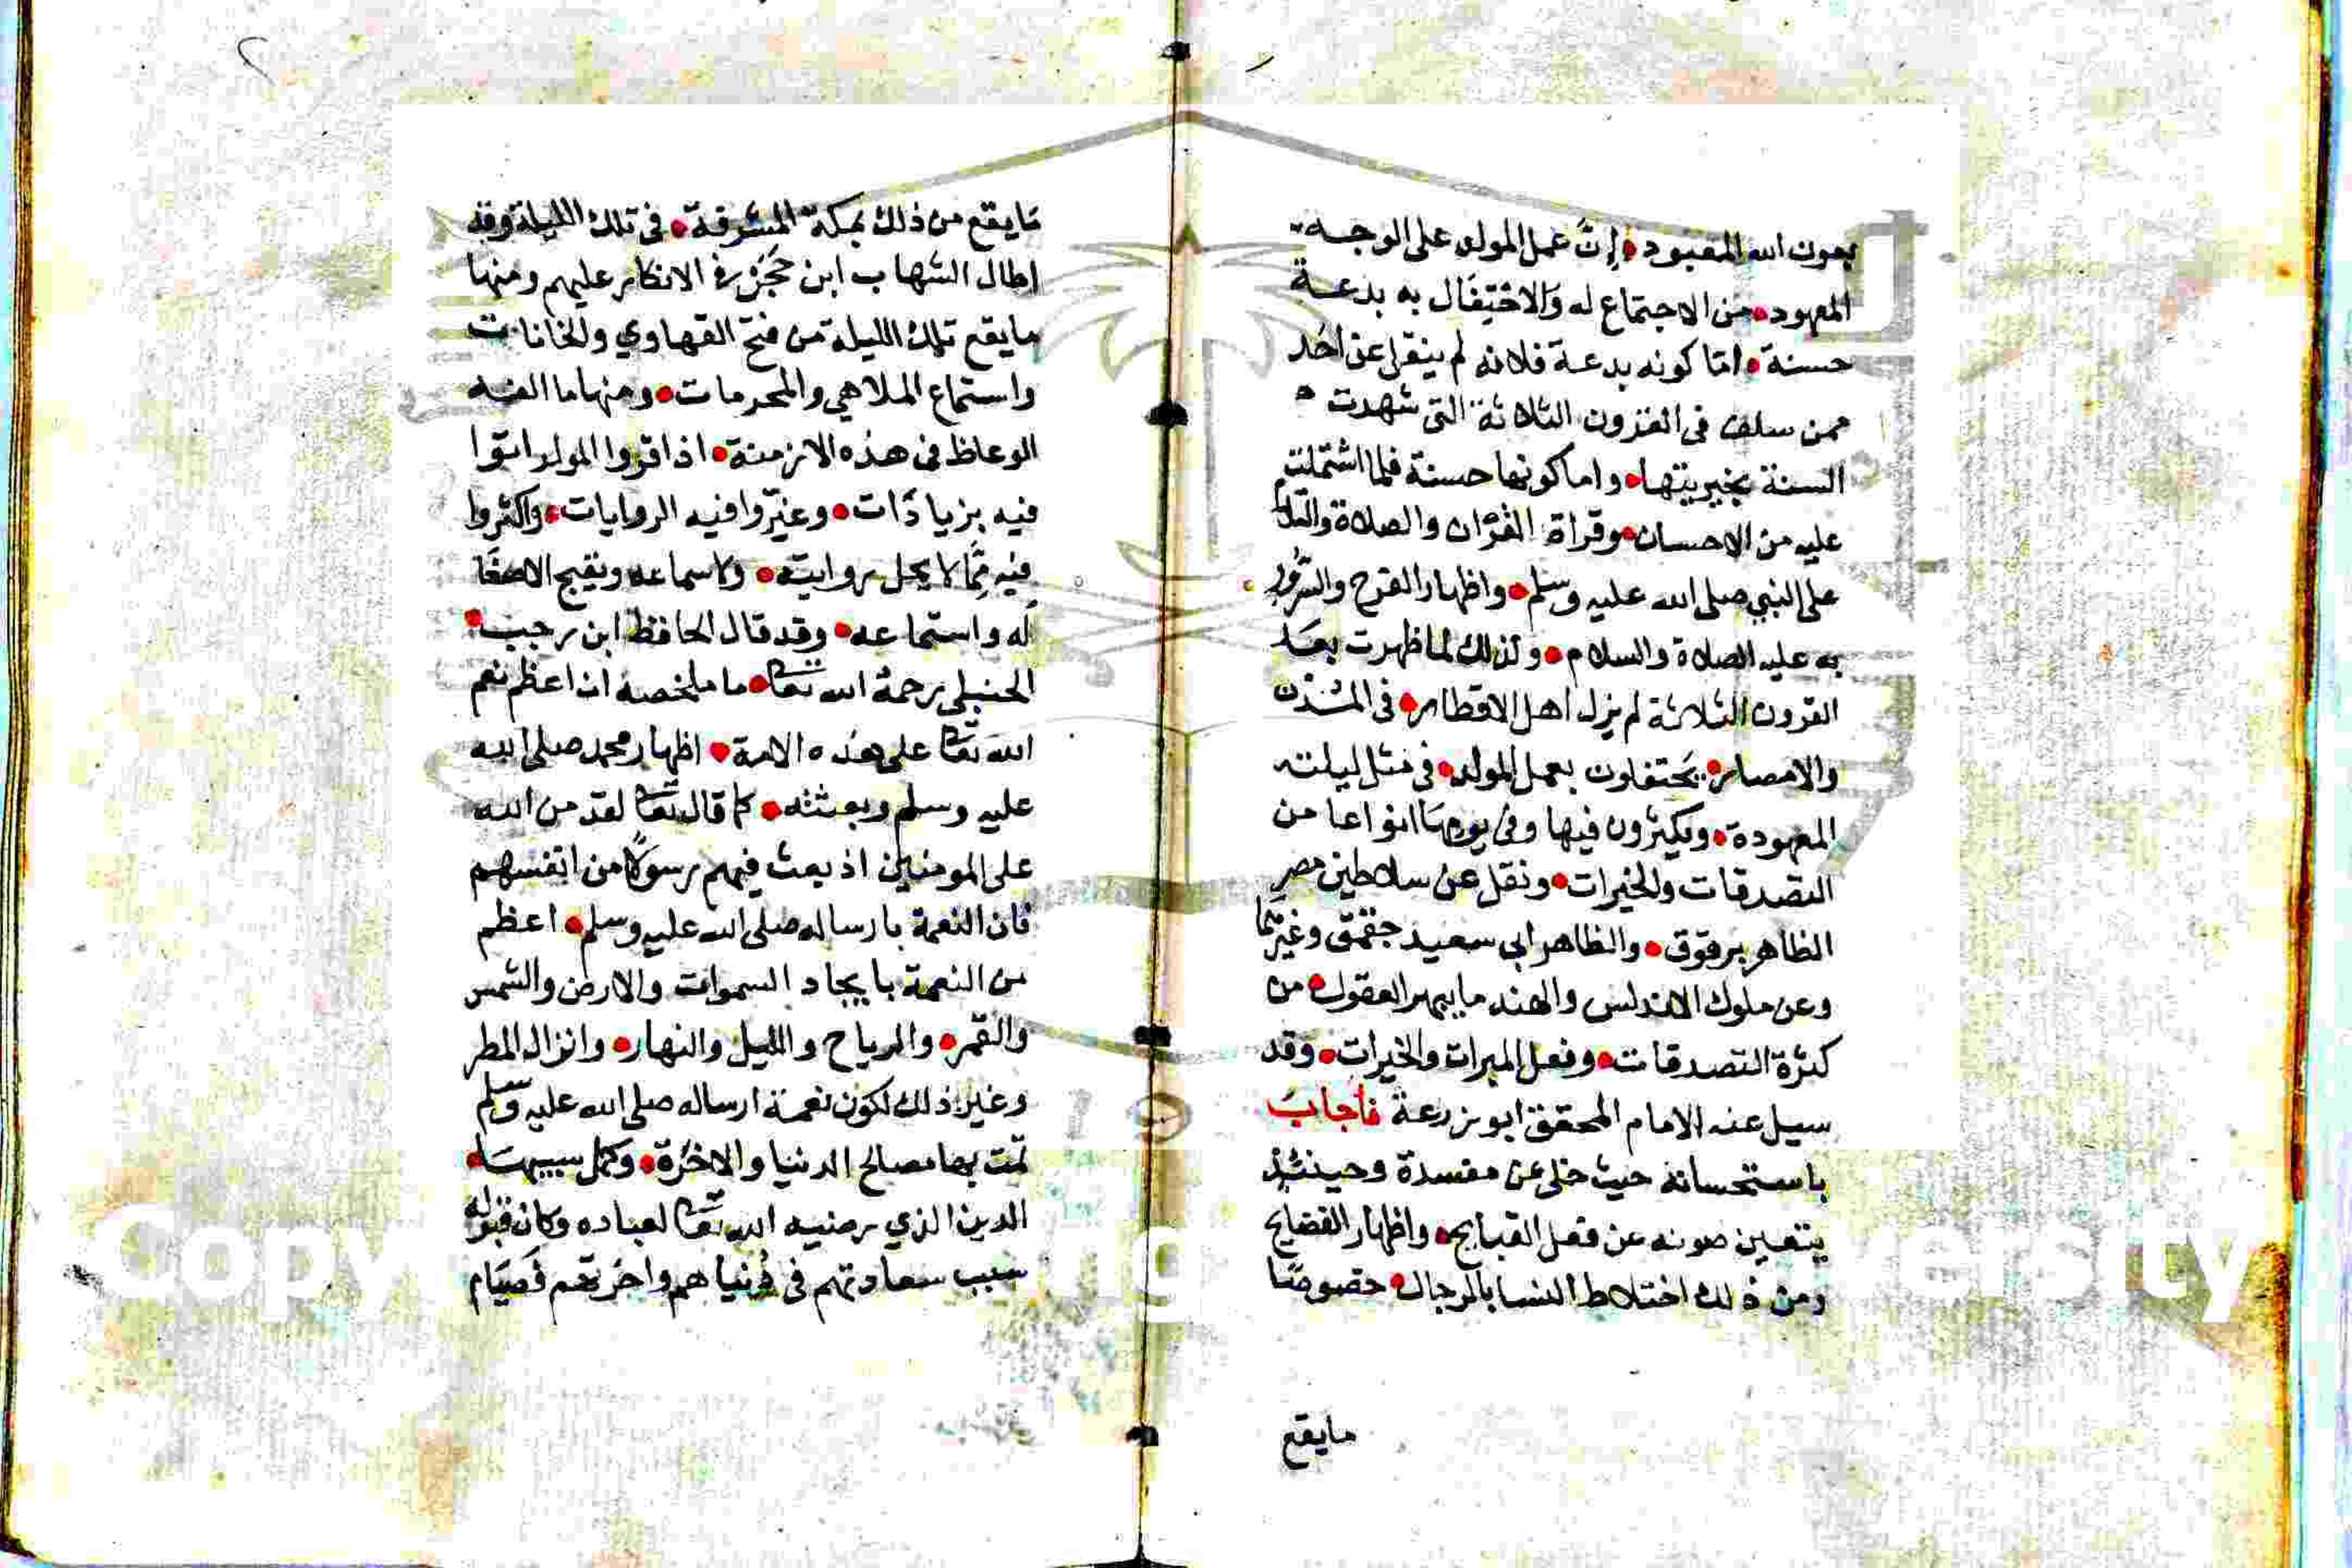 بعون الله المعبود • إنَّ عمل المولد على الوجه
المعهود • من الاجتماع له والاحتِفَال به بدعة
حسنة • امّا كونه بدعة فلانه لم ينقل عن احَد
ممن سلف في القرون الثلاثة التي شهدت
السنة بخيريتها • واما كونها حسنة فلما اشتملت
عليه من الاحسان • وقراة القرْان والصلاة والسلام
على النبي صلى الله عليه وسلم • واظهار الفرح والسُّرور
به عليه الصلاة والسلام • ولذلك لما ظهرت بعد
القرون الثلاثة لم يزل اهل الاقطار • في المُدن
والامصار • يَحتفلون بعمل المولد • في مثل ليلته
المعهودة • ويكثرون فيها وفي يومها انواعا من
التصدقات والخيرات • ونقل عن سلاطين مصر
الظاهر برقوق • والظاهر ابى سعيد جقمق وغيرهما
وعن ملوك الاندلس والهند ما يبهر العقول • من
كثرة التصدقات • وفعل المبرات والخيرات • وقد
سيل عنه الامام المحقق ابو زرعة فأجابَ
باستحسانه حيث خلى عن مفسدة وحينئذ
يتعين صونه عن فعل القبايح • واظهار الفضايح
ومن ذلك اختلاط النسا بالرجال • خصوصًا
مايقع
مَايقع من ذلك بمكة المشرفة • في تلك الليلة وقد
اطال الشهاب ابن حَجَرْ في الانكار عليهم ومنها
مايقع تلك الليلة من فتح القهاوي والخانات
واستماع الملاهي والمحرمات • ومنها ما الفه
الوعاظ في هذه الازمنة • اذا قروا المولد اتوا
فيه بزيادَات • وغيّروا فيه الروايات • واكثروا
فيه مِمَّا لا يحل روايته • ولا سماعه ويقبح الاصغَا
له واستماعه • وقد قال الحافظ ابن رجب •
الحنبلي رحمهُ الله تعالى • ما ملخصه ان اعظم نعم
الله تعالى على هذه الامة • اظهار محمد صلى الله
عليه وسلم وبعثته • كما قال تعالى لقد من الله
على المومنين اذ بعث فيهم رسولًا من انفسهم
فان النعمة بارساله صلى الله عليه وسلم • اعظم
من النعمة بايجاد السموات والارض والشمس
والقمر • والرياح والليل والنهار • وانزال المطر
وغير ذلك لكون نعمة ارساله صلى الله عليه وسلم
تمت بها مصالح الدنيا والاخرة • وكمل سببها •
الدين الذي رضيه الله تعالى لعباده وكان قبوله
سبب سعادتهم في دُنياهم واخرتهم فَصيَام